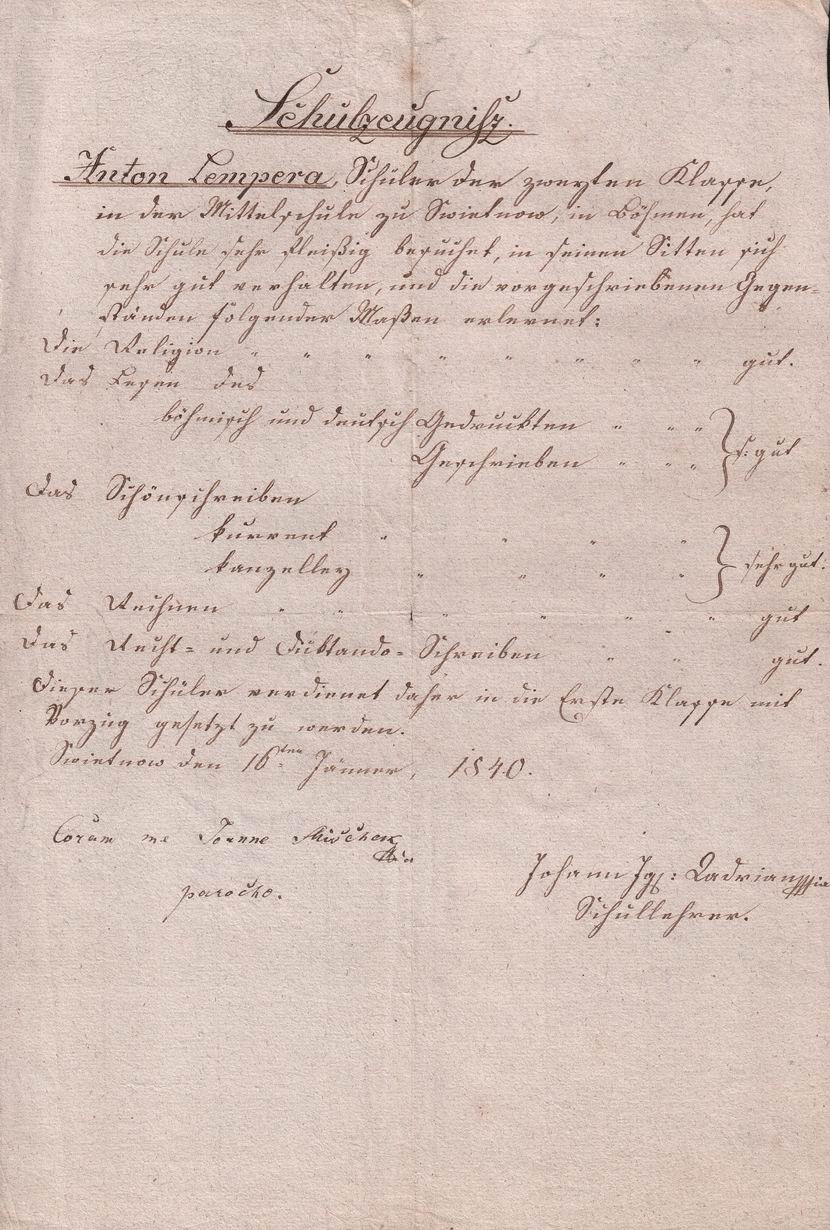 Schulzeugnisz.
Anton Lempera, Schüler der zweyten Klasse,
in der Mittelschule zu Swietnow, in Böhmen, hat
die Schule sehr fleißig besuchet, in seinen Sitten sich
sehr gut verhalten, und die vorgeschriebenen Gegen=
ständen folgender Maßen erlernet:
Die Religion " " " " " " " " gut.
Das Lesen des
böhmisch und deutsch Gedruckten " " " } s: gut
Geschrieben " " "
Das Schönschreiben
kurrent " " " " } sehr gut.
kanzelley " " " "
Das Rechnen " " " " " " gut
Das Recht= und Diktando=Schreiben " " gut.
Dieser Schüler verdienet daher in die Erste Klasse mit
Vorzug gesetzt zu werden.
Swietnow den 16ten Jänner, 1840.
Coram me Joanne
parocho.
Johann Ig:
Schullehrer.